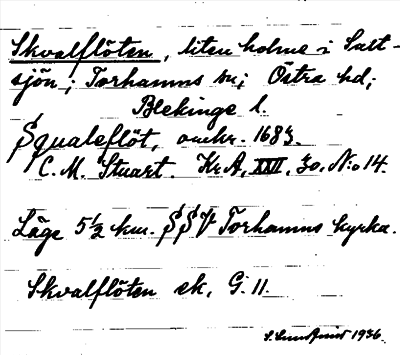 Skvalflöten, liten holme i Salt-
sjön; Torhamns sn; Östra hd;
Blekinge l.
Squaleflöt, omkr. 1683.
C. M. Stuart. Kr. A, XXII, 30, N:o 14.
Läge 5½ km. SSV Torhamns kyrka.
Skvalflöten ek. G. 11.
1936.